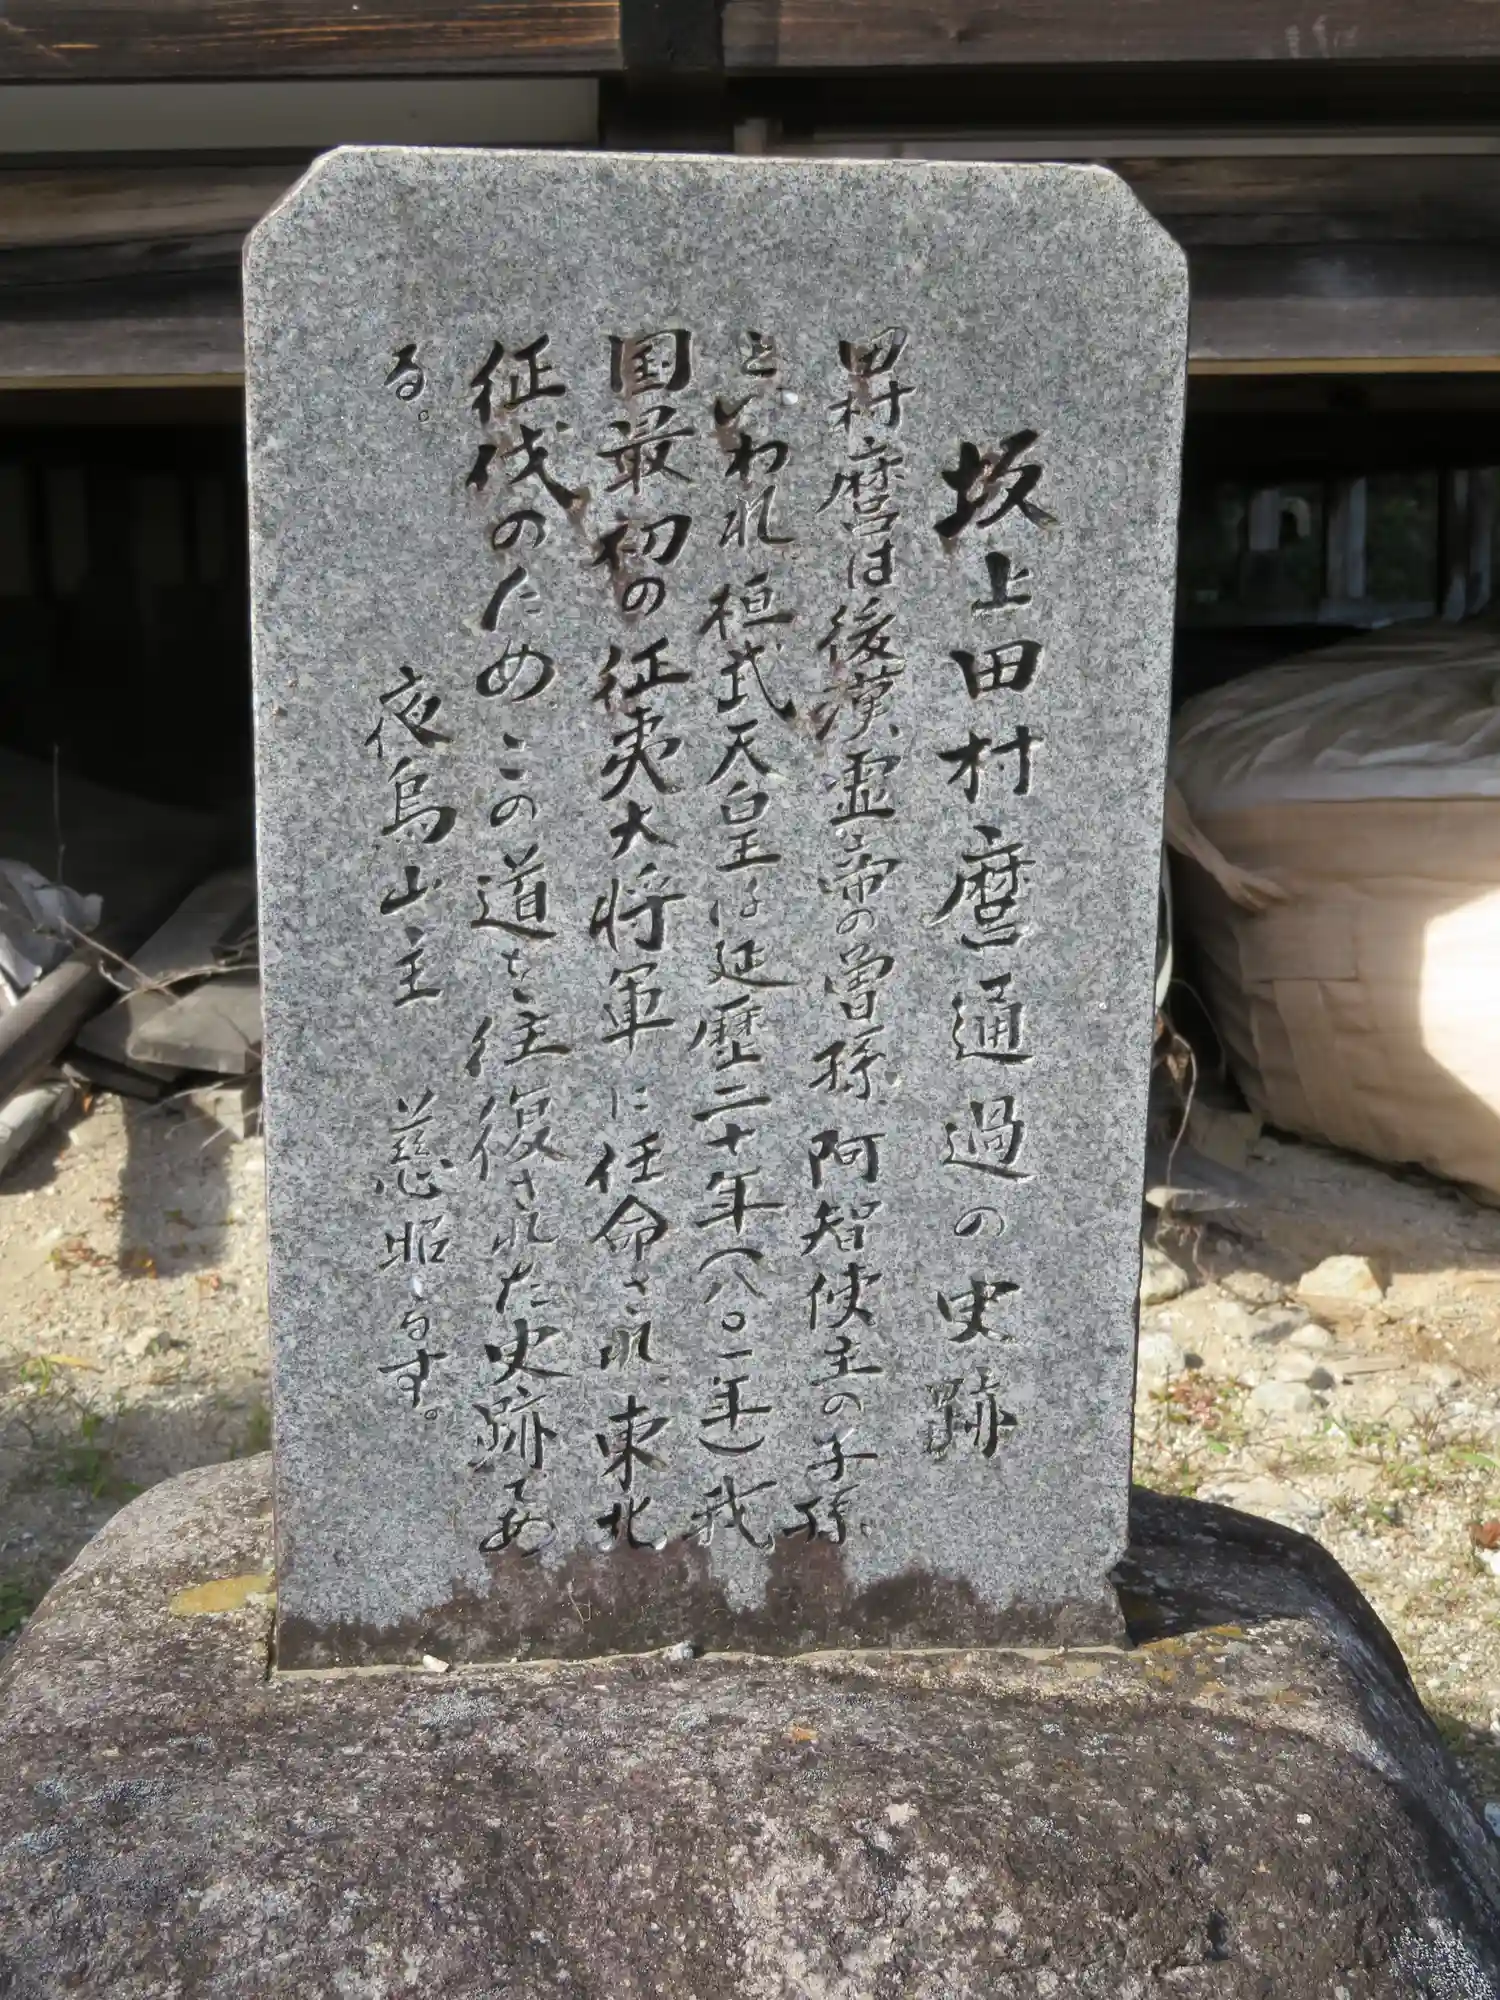 坂上田村麿通過の史跡
田村麿は後漢霊帝の曽孫阿智使主の子孫
といわれ桓武天皇は延歴二十年(八〇一年)我
国最初の征夷大将軍に任命され東北
征伐のためこの道を往復された史跡であ
る。
夜烏山主 慈昭しるす。